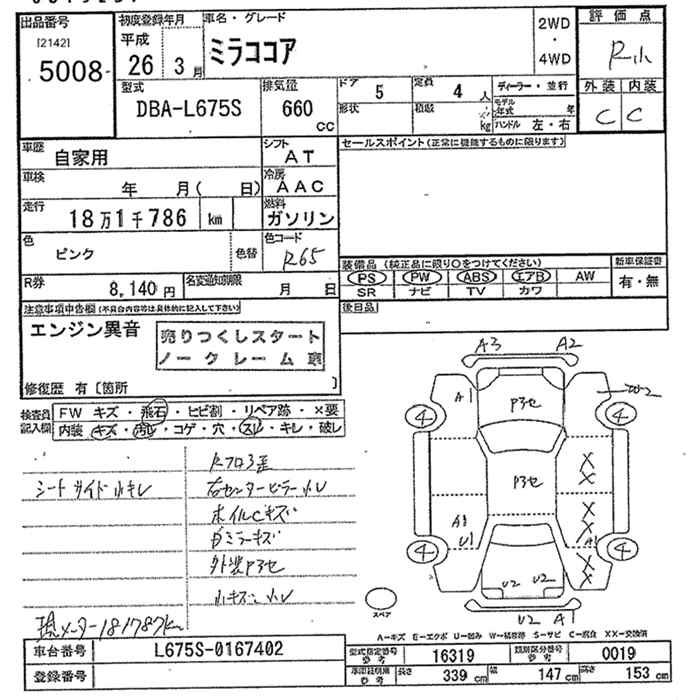 出品番号 初度登録年月 車名・グレード 2WD・4WD 評価点
[2142] 平成 ミラココア R小
5008 26年 3月
型式 排気量 ドア 5 定員 4人 ディーラー・並行 外装 内装
DBA-L675S 660cc 形状 積載 kg モデル年式 年 C C
ハンドル 左・右
車歴 自家用 シフト AT セールスポイント(正常に機能するものに限ります)
車検 年 月( 日) 冷房 AAC
走行 18万1千786 km 燃料 ガソリン
色 ピンク 色替 色コード R65
装備品(純正品に限り○をつけてください) 新車保証書
PS PW ABS エアB AW 有・無
SR ナビ TV カワ
R券 8,140円 名変通知期限 月 日
注意事項申告欄(不具合内容等は具体的に記入して下さい) 後日品
エンジン異音 売りつくしスタート
ノークレーム車
修復歴 有〔箇所
検査員記入欄 FW キズ・飛石・ヒビ割・リペア跡・×要
内装 キズ・汚レ・コゲ・穴・スレ・キレ・破レ
Rフロ3歪
シートサイド小キレ 右センターピラー小レ
ホイルCキズ
Dミラーキズ
外装P3セ
小キズ
現メーター181787km
A3 A2
A1 P3セ W2
4 4
P3セ X X
A1 U1 X X A1
4 4
X X
U2 U2
U2 A1
スペア
A—キズ E—エクボ U—凹み W—補修跡 S—サビ C—腐食 XX—交換済
車台番号 L675S-0167402 型式指定番号 参考 16319 類別区分番号 参考 0019
登録番号 車両諸元 参考 長さ 339cm 幅 147cm 高さ 153cm